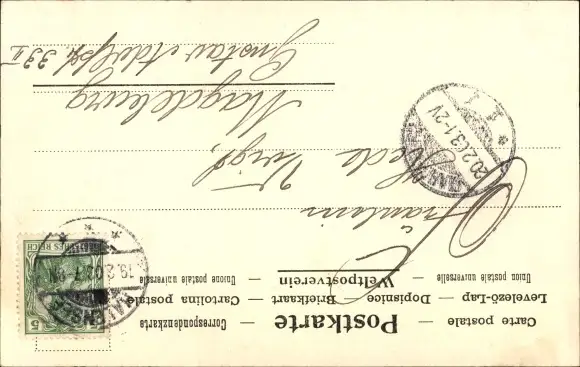 Postkarte
Carte postale — Correspondenzkarte
Levelező-Lap — Dopisnice — Briefkaart — Cartolina postale
Union postale universelle — Weltpostverein — Unione postale universale
Fräulein
Hede
Magdeburg
Gustav Adolfstr. 33 II
DEUTSCHES REICH
5
19.2.03.
20.2.03.1-2V